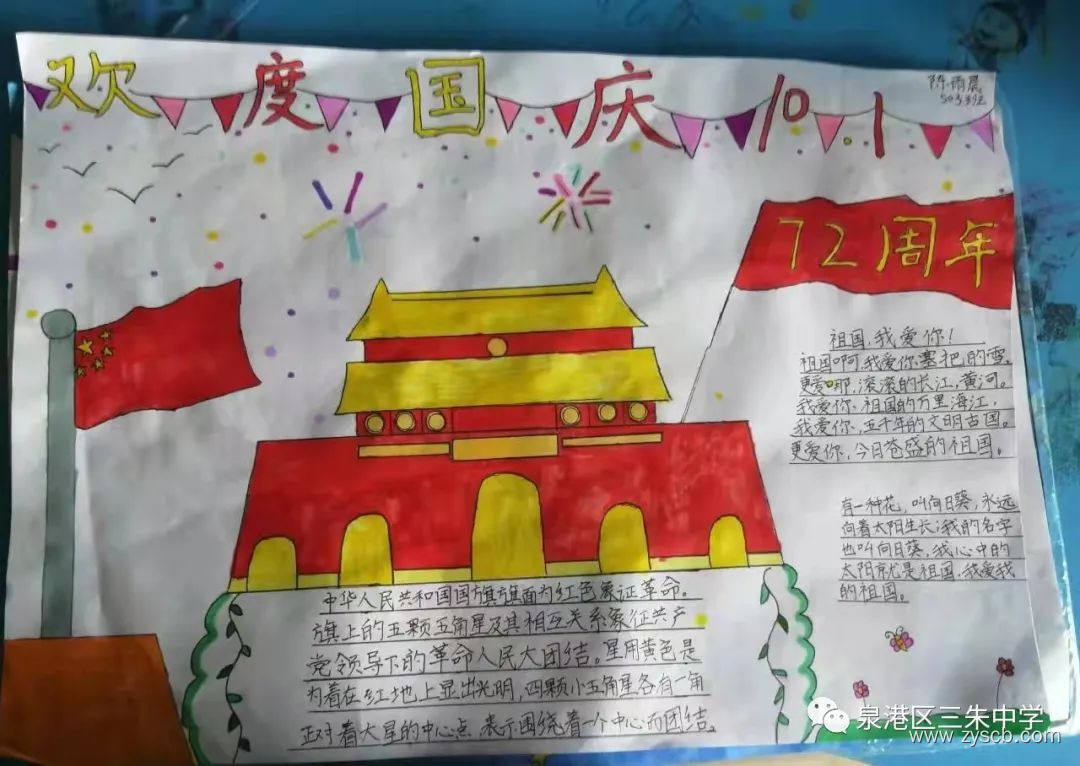 欢度国庆 10.1
陈雨晨
503班
72周年
祖国,我爱你!
祖国啊,我爱你塞把的雪。
更爱那,滚滚的长江,黄河。
我爱你,祖国的万里海江,
我爱你,五千年的文明古国。
更爱你,今日苍盛的祖国。
有一种花,叫向日葵,永远
向着太阳生长;我的名字
也叫向日葵,我心中的
太阳就是祖国,我爱我
的祖国。
中华人民共和国国旗旗面为红色象证革命。
旗上的五颗五角星及其相互关系象征共产
党领导下的革命人民大团结。星用黄色是
为着在红地上显出光明,四颗小五角星各有一角
正对着大星的中心点 表示围绕着一个中心而团结。
泉港区三朱中学
www.zyscb.com